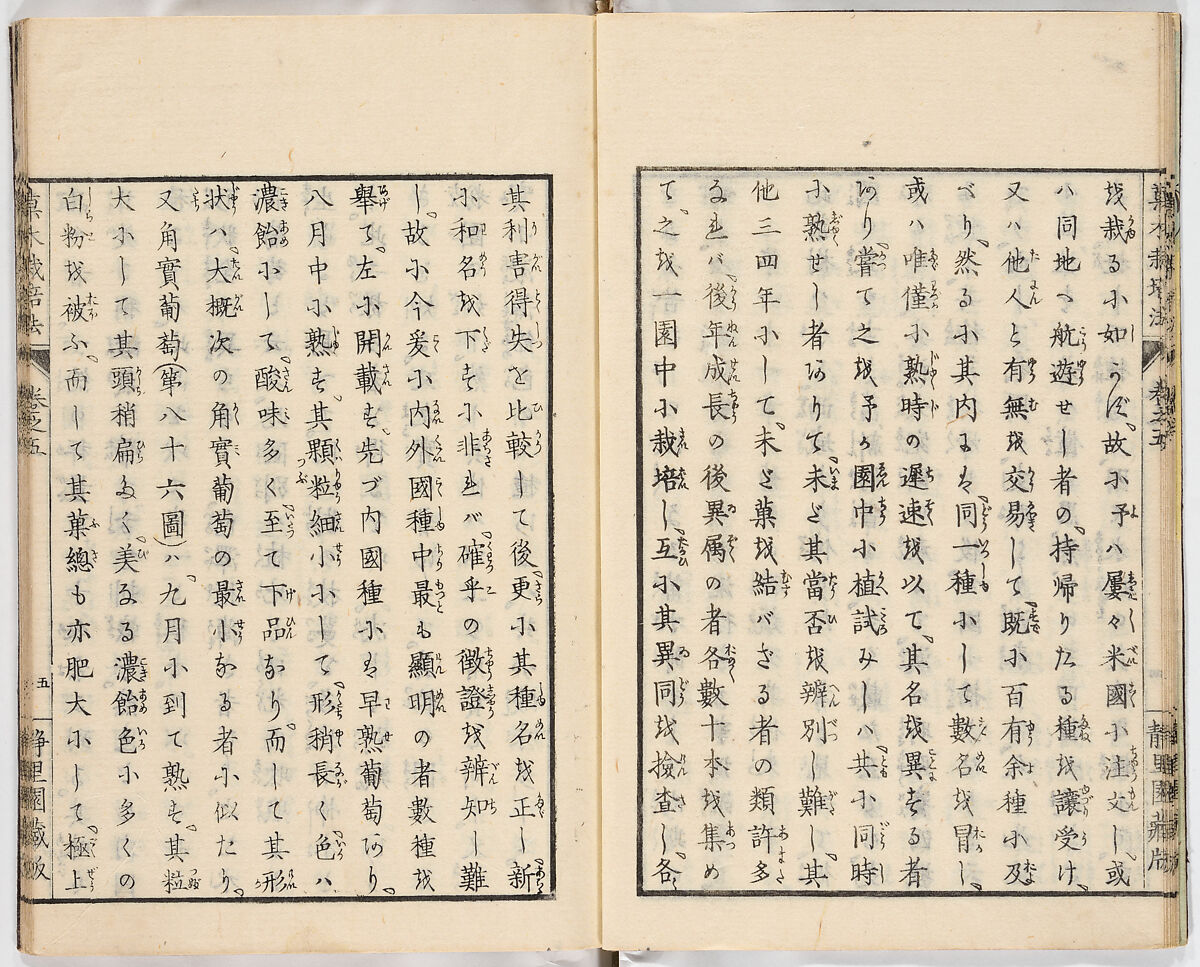 菓木栽培法 卷之五 静里園藏版
を栽る小如うず、故小予ハ屢々米國小注文し、或
ハ同地へ航遊せし者の、持帰りたる種を讓受け、
又ハ他人と有無を交易して、既小百有余種小及
べり、然る小其内には、同一種小して數名を冒し、
或ハ唯僅小熟時の遲速を以て、其名を異する者
あり、嘗て之を予が園中小植試みしハ、共小同時
小熟せし者ありて、未ど其當否を辨別し難し、其
他三四年小して、未と菓を結バざる者の類許多
なれバ、後年成長の後、異属の者各數十本を集め
て、之を一園中小栽培し、互小其異同を撿査し、各
其利害得失を比較して後、更小其種名を正し、新
小和名を下す小非れバ、確乎の徴證を辨知し難
し、故小今爰小内外國種中、最も顯明の者數種を
舉て、左小開載す、先づ内國種小は早熟葡萄あり、
八月中小熟す、其顆粒細小小して、形稍長く、色ハ
濃飴小して、酸味多く、至て下品なり、而して其形
状ハ、大概次の角實葡萄の最小なる者小似たり、
又角實葡萄(第八十六圖)ハ、九月小到て熟す、其粒
大小して其頭稍扁たく、美なる濃飴色小多くの
白粉を被ふ、而して其菓總も亦肥大小して、極上
菓木栽培法 卷之五 五 静里園藏版